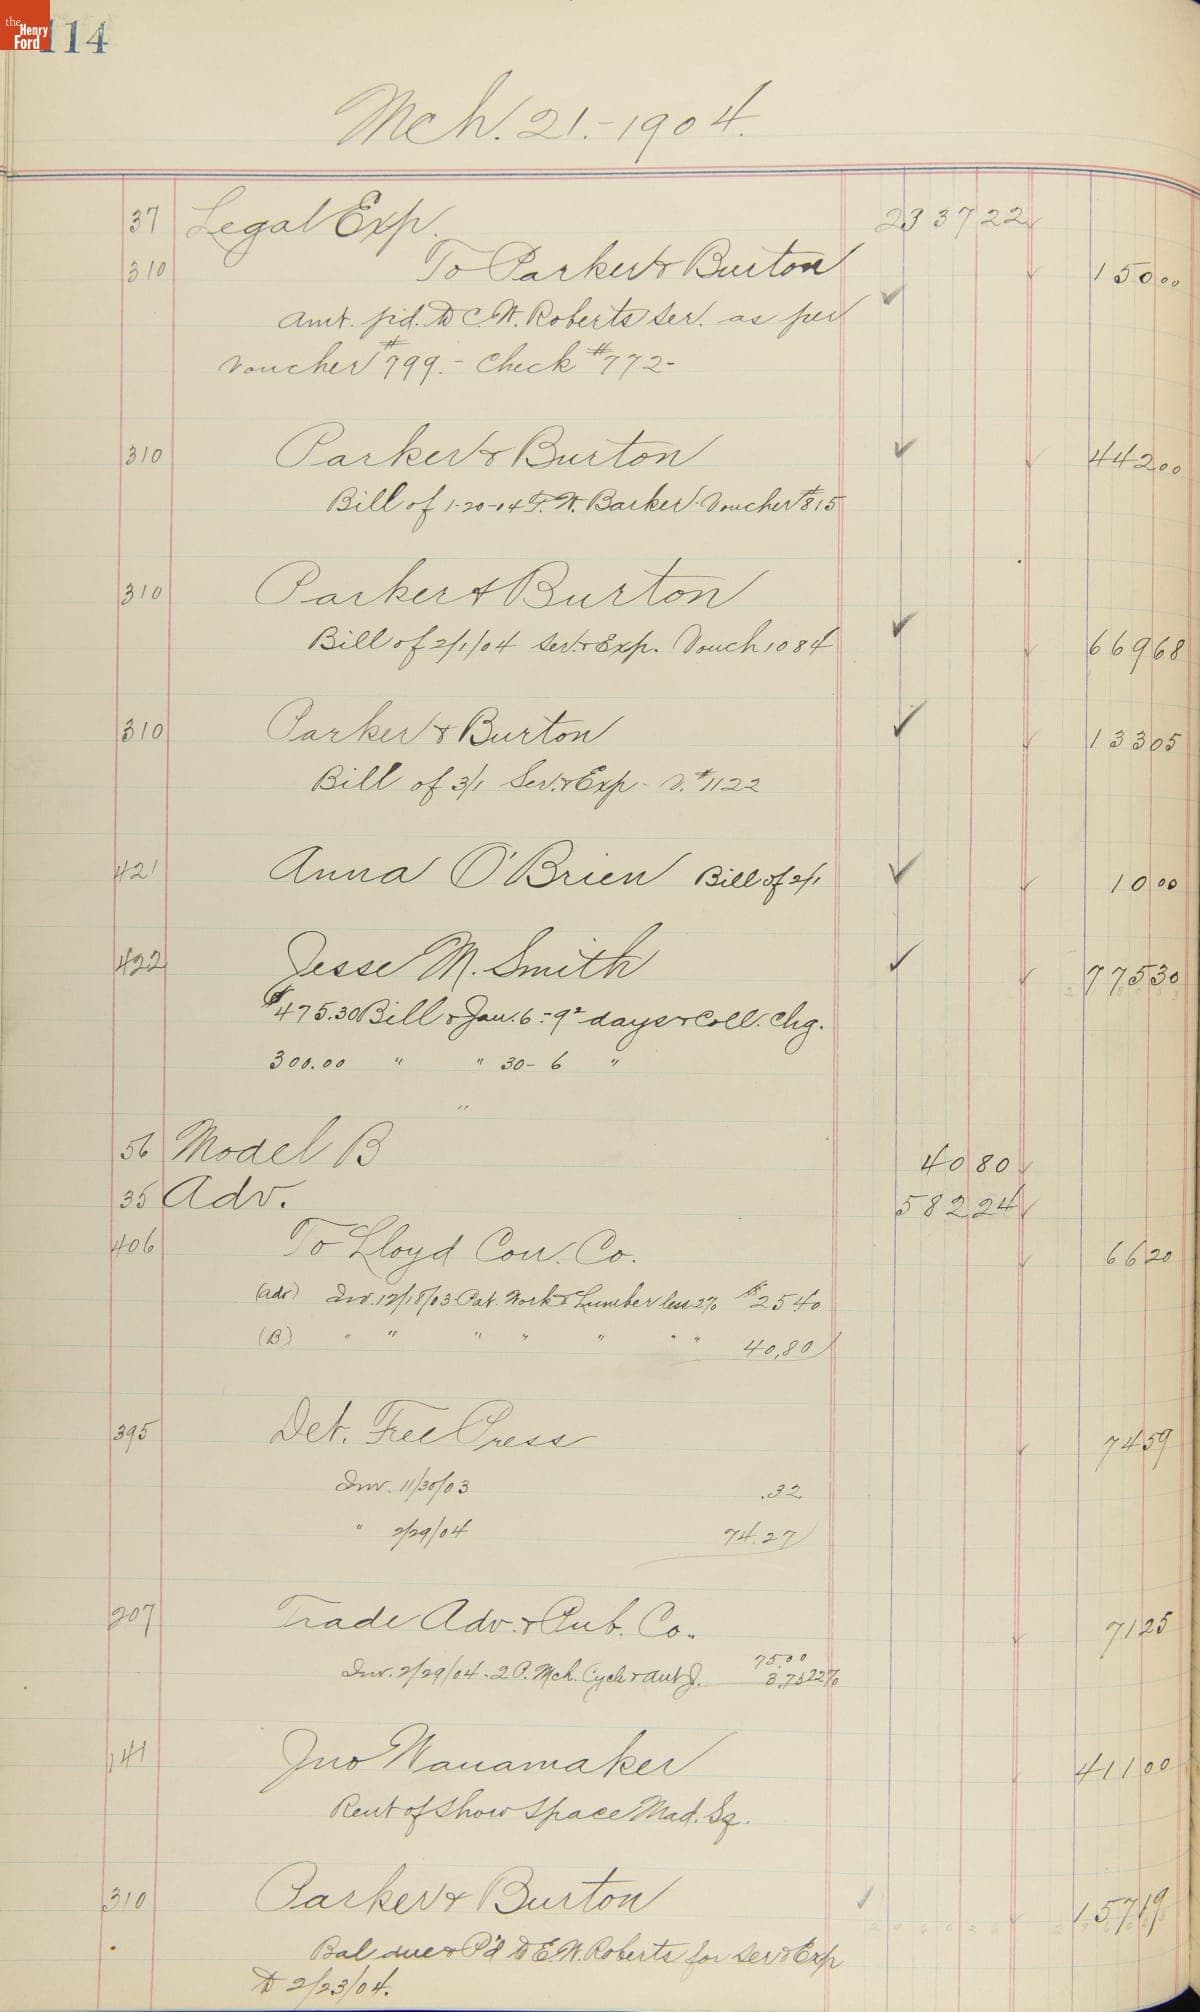 the Henry Ford
114
Mch. 21.-1904.
37 Legal Exp. 2337 22
310 To Parker & Burton 150 00
Amt. pd. to C. W. Roberts ser. as per
voucher #799.- Check #772-
310 Parker & Burton 442 00
Bill of 1-20-04 F. W. Barker. Voucher #815
310 Parker & Burton 669 68
Bill of 2/1/04 ser. & Exp. Vouch 1084
310 Parker & Burton 133 05
Bill of 3/1 Ser. & Exp - V. #1122
421 Anna O'Brien Bill of 2/1 10 00
422 Jesse M. Smith 775 30
$475.30 Bill Jan. 6 = 9 days & Coll. Chg.
300.00 " " 30 - 6 "
"
56 Model B 40 80
35 Adv. 582 24
406 To Lloyd Con. Co. 66 20
(adv) Inv. 12/18/03 Pat. Work & Lumber less 2% $25 40
(B) " " " " " " " 40,80
395 Det. Free Press 74 59
Inv. 11/30/03 .32
" 2/29/04 74.27
207 Trade Adv. & Pub. Co. 71 25
Inv. 2/29/04 - 2 P. Mch. Cycle & Aut J. 75.00
3.75
141 Jno Wanamaker 411 00
Rent of show space Mad. Sq.
310 Parker & Burton 157 19
Bal due & P'd to E. W. Roberts for ser & Exp
to 2/23/04.